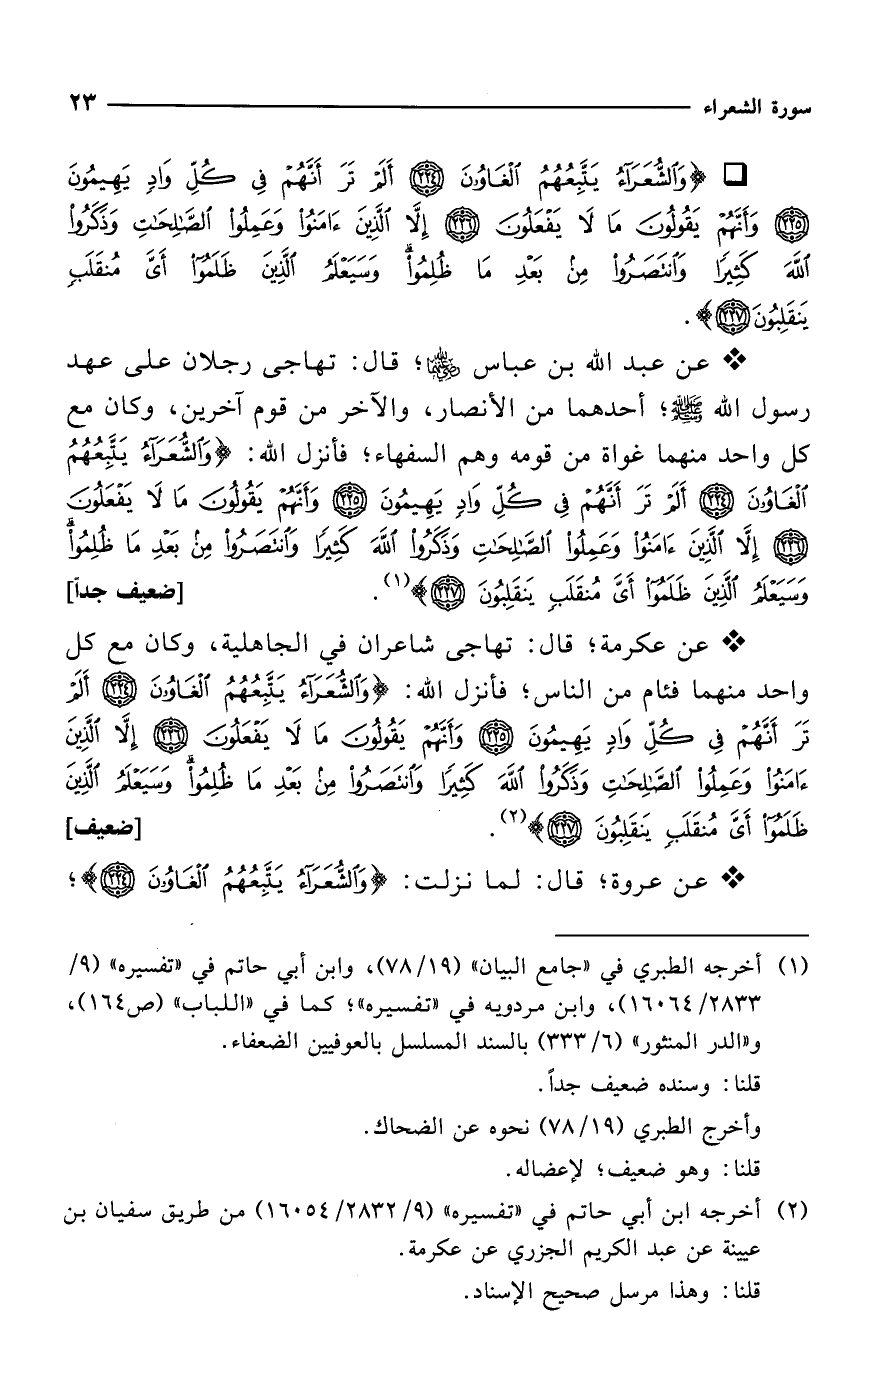 سورة الشعراء ٢٣
❑ ﴿وَٱلشُّعَرَآءُ يَتَّبِعُهُمُ ٱلْغَاوُۥنَ ﴿٢٢٤﴾ أَلَمْ تَرَ أَنَّهُمْ فِى كُلِّ وَادٍ يَهِيمُونَ
﴿٢٢٥﴾ وَأَنَّهُمْ يَقُولُونَ مَا لَا يَفْعَلُونَ ﴿٢٢٦﴾ إِلَّا ٱلَّذِينَ ءَامَنُوا۟ وَعَمِلُوا۟ ٱلصَّـٰلِحَـٰتِ وَذَكَرُوا۟
ٱللَّهَ كَثِيرًا وَٱنتَصَرُوا۟ مِنۢ بَعْدِ مَا ظُلِمُوا۟ ۗ وَسَيَعْلَمُ ٱلَّذِينَ ظَلَمُوٓا۟ أَىَّ مُنقَلَبٍ
يَنقَلِبُونَ ﴿٢٢٧﴾﴾.
❖ عن عبد الله بن عباس رضي الله عنهما؛ قال: تهاجى رجلان على عهد
رسول الله ﷺ؛ أحدهما من الأنصار، والآخر من قوم آخرين، وكان مع
كل واحد منهما غواة من قومه وهم السفهاء؛ فأنزل الله: ﴿وَٱلشُّعَرَآءُ يَتَّبِعُهُمُ
ٱلْغَاوُۥنَ ﴿٢٢٤﴾ أَلَمْ تَرَ أَنَّهُمْ فِى كُلِّ وَادٍ يَهِيمُونَ ﴿٢٢٥﴾ وَأَنَّهُمْ يَقُولُونَ مَا لَا يَفْعَلُونَ
﴿٢٢٦﴾ إِلَّا ٱلَّذِينَ ءَامَنُوا۟ وَعَمِلُوا۟ ٱلصَّـٰلِحَـٰتِ وَذَكَرُوا۟ ٱللَّهَ كَثِيرًا وَٱنتَصَرُوا۟ مِنۢ بَعْدِ مَا ظُلِمُوا۟ ۗ
وَسَيَعْلَمُ ٱلَّذِينَ ظَلَمُوٓا۟ أَىَّ مُنقَلَبٍ يَنقَلِبُونَ ﴿٢٢٧﴾﴾(١). [ضعيف جداً]
❖ عن عكرمة؛ قال: تهاجى شاعران في الجاهلية، وكان مع كل
واحد منهما فئام من الناس؛ فأنزل الله: ﴿وَٱلشُّعَرَآءُ يَتَّبِعُهُمُ ٱلْغَاوُۥنَ ﴿٢٢٤﴾ أَلَمْ
تَرَ أَنَّهُمْ فِى كُلِّ وَادٍ يَهِيمُونَ ﴿٢٢٥﴾ وَأَنَّهُمْ يَقُولُونَ مَا لَا يَفْعَلُونَ ﴿٢٢٦﴾ إِلَّا ٱلَّذِينَ
ءَامَنُوا۟ وَعَمِلُوا۟ ٱلصَّـٰلِحَـٰتِ وَذَكَرُوا۟ ٱللَّهَ كَثِيرًا وَٱنتَصَرُوا۟ مِنۢ بَعْدِ مَا ظُلِمُوا۟ ۗ وَسَيَعْلَمُ ٱلَّذِينَ
ظَلَمُوٓا۟ أَىَّ مُنقَلَبٍ يَنقَلِبُونَ ﴿٢٢٧﴾﴾(٢). [ضعيف]
❖ عن عروة؛ قال: لما نزلت: ﴿وَٱلشُّعَرَآءُ يَتَّبِعُهُمُ ٱلْغَاوُۥنَ ﴿٢٢٤﴾﴾؛
(١) أخرجه الطبري في «جامع البيان» (١٩/ ٧٨)، وابن أبي حاتم في «تفسيره» (٩/
٢٨٣٣/ ١٦٠٦٤)، وابن مردويه في «تفسيره»؛ كما في «اللباب» (ص١٦٤)،
و«الدر المنثور» (٦/ ٣٣٣) بالسند المسلسل بالعوفيين الضعفاء.
قلنا: وسنده ضعيف جداً.
وأخرج الطبري (١٩/ ٧٨) نحوه عن الضحاك.
قلنا: وهو ضعيف؛ لإعضاله.
(٢) أخرجه ابن أبي حاتم في «تفسيره» (٩/ ٢٨٣٢/ ١٦٠٥٤) من طريق سفيان بن
عيينة عن عبد الكريم الجزري عن عكرمة.
قلنا: وهذا مرسل صحيح الإسناد.